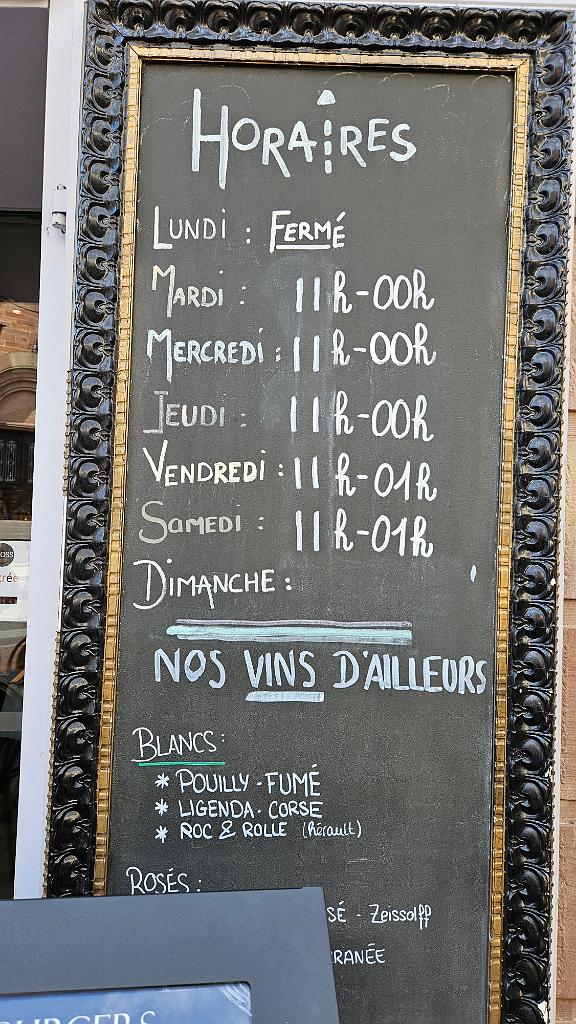 HORAIRES
LUNDI : FERMÉ
MARDI : 11h-00h
MERCREDI : 11h-00h
JEUDI : 11h-00h
VENDREDI : 11h-01h
SAMEDI : 11h-01h
DIMANCHE :
NOS VINS D'AILLEURS
BLANCS :
* POUILLY-FUMÉ
* LIGENDA. CORSE
* ROC & ROLLE (Hérault)
ROSÉS :
SÉ - Zeissolff
RANÉE